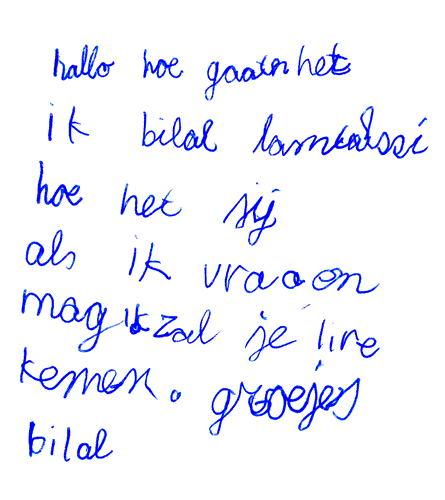 hallo hoe gaat het
ik bilal
hoe het jij
als ik vraaon
mag ik zal je lire
kemen. groejes
bilal